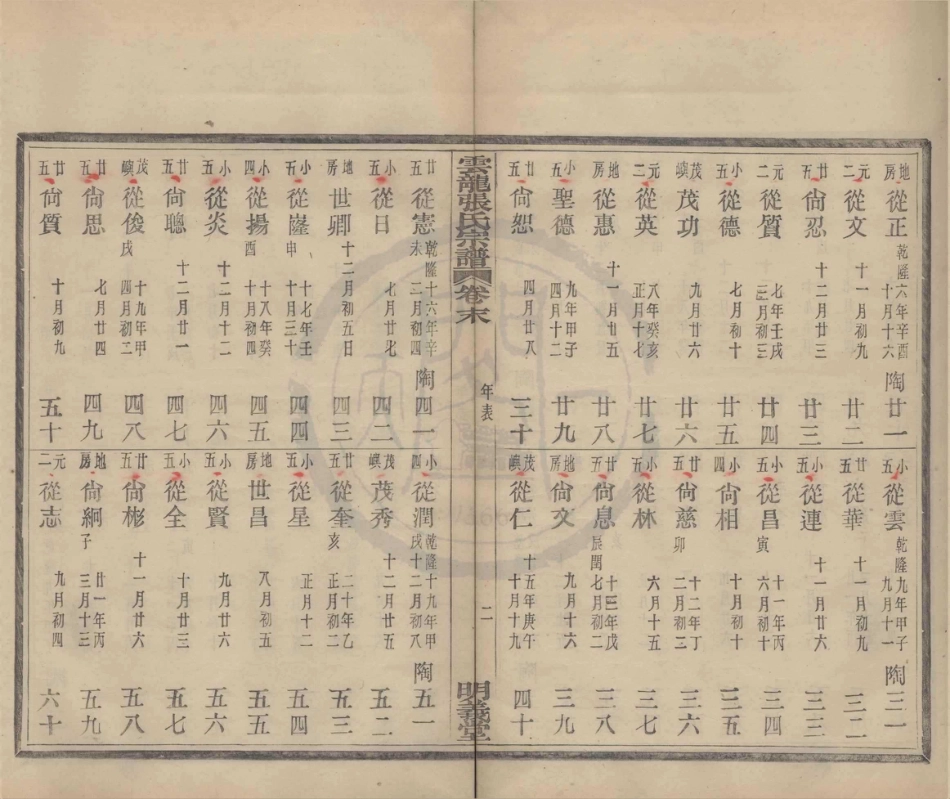 地房 從正 乾隆六年辛酉十月十六 陶 廿一
元二 從文 十一月初九 廿二
廿五 尙忍 十二月廿三 廿三
元二 從質 七年壬戌三月初三 廿四
小五 從德 七月初十 廿五
茂嶼 茂功 九月廿六 廿六
元二 從英 八年癸亥正月十七 廿七
地房 從惠 十一月廿五 廿八
小五 聖德 九年甲子四月十二 廿九
廿五 尙恕 四月廿八 三十
小五 從雲 乾隆九年甲子九月十一 陶 三一
廿五 從華 十一月初九 三二
小五 從連 十一月廿六 三三
小五 從昌 十一年丙寅六月初十 三四
小四 尙相 十月初十 三五
廿五 尙慈 十二年丁卯二月初三 三六
小五 從林 六月十五 三七
廿五 尙息 十三年戊辰閏七月初二 三八
地房 尙文 九月十六 三九
茂嶼 從仁 十五年庚午十月十九 四十
雲龍張氏宗譜 卷末 年表 二 明義堂
廿五 從憲 乾隆十六年辛未二月初四 陶 四一
小五 從日 七月廿七 四二
地房 世卿 十二月初五日 四三
小五 從嶐 十七年壬申十月三十 四四
小四 從揚 十八年癸酉十月初四 四五
小五 從炎 十二月十二 四六
廿五 尙聰 十二月廿一 四七
茂嶼 從俊 十九年甲戌四月初二 四八
廿五 尙思 七月廿四 四九
廿五 尙質 十月初九 五十
小四 從潤 乾隆十九年甲戌十二月初八 陶 五一
茂嶼 茂秀 十二月廿五 五二
廿五 從奎 二十年乙亥正月初二 五三
小五 從星 正月十二 五四
地房 世昌 八月初五 五五
小五 從賢 九月廿六 五六
小五 從全 十月廿三 五七
廿五 尙彬 十一月廿六 五八
地房 尙綱 廿一年丙子三月十三 五九
元二 從志 九月初四 六十